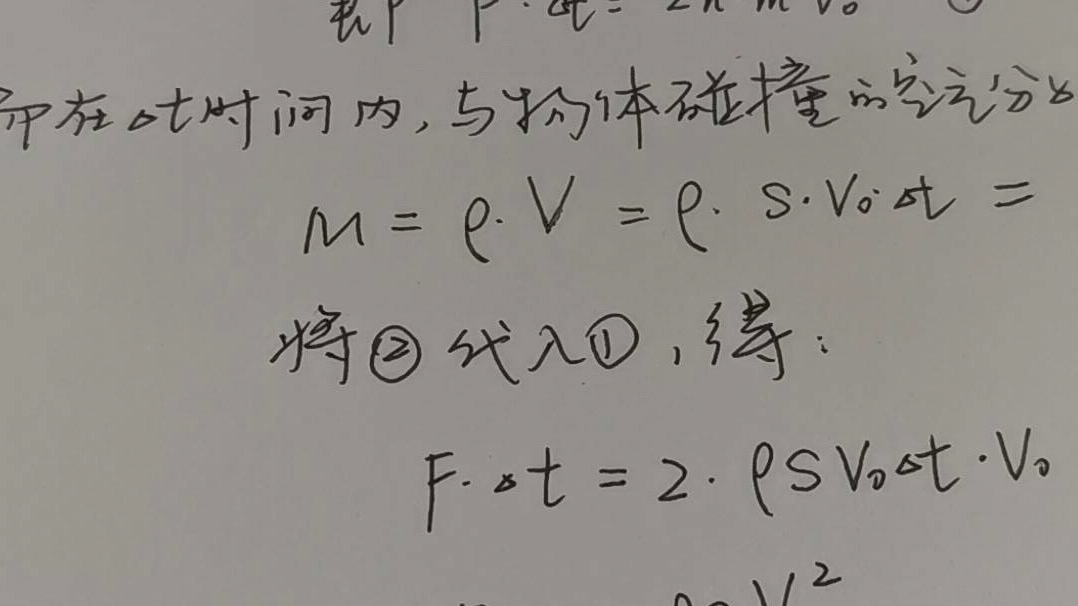 即 F·Δt = 2n m v₀ ①
即在Δt时间内,与物体碰撞的空气分
M = ρ·V = ρ· S·V₀·Δt =
将②代入①,得:
F·Δt = 2·ρSV₀Δt·V₀
ρSV²